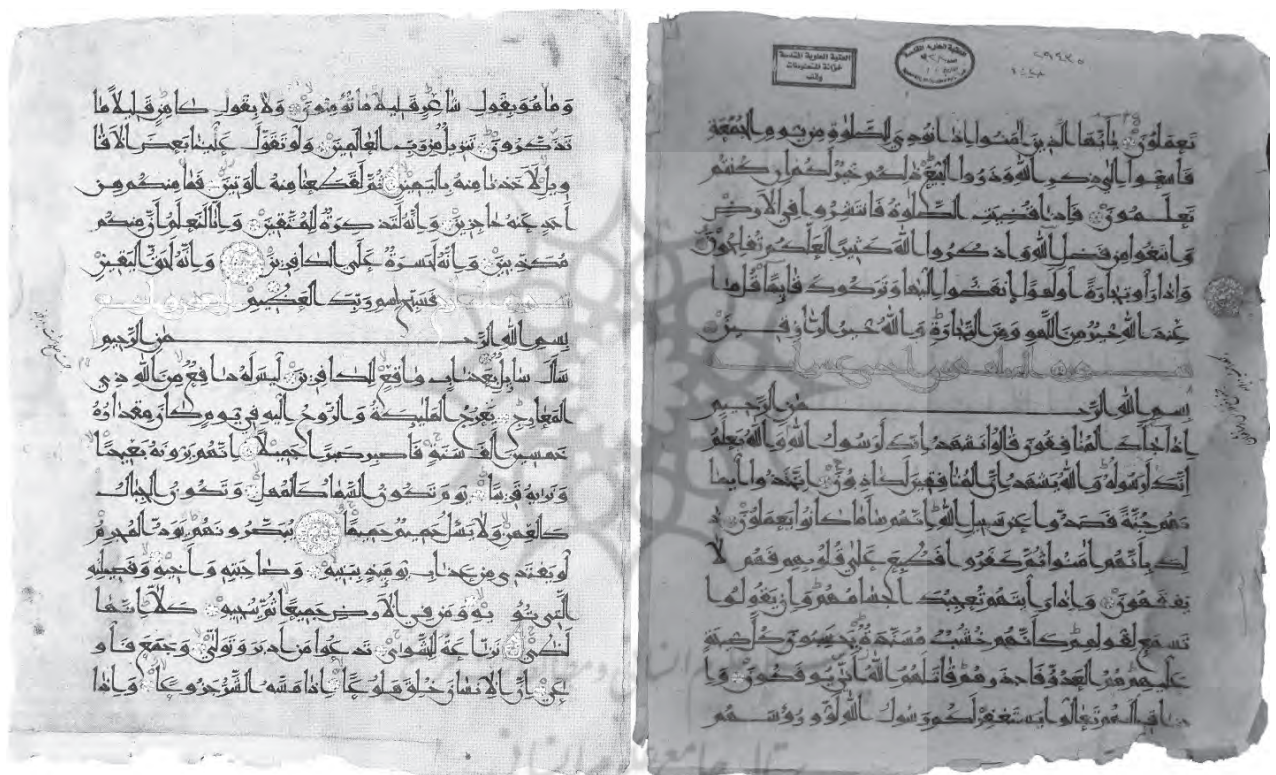 العتبة العلوية المقدسة
خزانة المخطوطات
وقف
تعملون يا أيها الذين امنوا اذا نودي للصلوة من يوم الجمعة
فاسعوا الى ذكر الله وذروا البيع ذلكم خير لكم ان كنتم
تعلمون فاذا قضيت الصلوة فانتشروا في الارض
وابتغوا من فضل الله واذكروا الله كثيرا لعلكم تفلحون
واذا راوا تجارة او لهوا انفضوا اليها وتركوك قايما قل ما
عند الله خير من اللهو ومن التجارة والله خير الرازقين
بسم الله الرحمن الرحيم
اذا جاك المنافقون قالوا نشهد انك لرسول الله والله يعلم
انك لرسوله والله يشهد ان المنافقين لكاذبون اتخذوا ايما
نهم جنة فصدوا عن سبيل الله انهم سا ما كانوا يعملون ذ
لك بانهم امنوا ثم كفروا فطبع على قلوبهم فهم لا
يفقهون واذا رايتهم تعجبك اجسامهم وان يقولوا
تسمع لقولهم كانهم خشب مسندة يحسبون كل صيحة
عليهم هم العدو فاحذرهم قاتلهم الله انى يوفكون وا
ذا قيل لهم تعالوا يستغفر لكم رسول الله لووا روسهم
وما هو بقول شاعر قليلا ما تومنون ولا بقول كاهن قليلا ما
تذكرون تنزيل من رب العالمين ولو تقول علينا بعض الاقا
ويل لاخذنا منه باليمين ثم لقطعنا منه الوتين فما منكم من
احد عنه حاجزين وانه لتذكرة للمتقين وانا لنعلم ان منكم
مكذبين وانه لحسرة على الكافرين وانه لحق اليقين
فسبح باسم ربك العظيم
بسم الله الرحمن الرحيم
سال سايل بعذاب واقع للكافرين ليس له دافع من الله ذي
المعارج تعرج الملايكة والروح اليه في يوم كان مقداره
خمسين الف سنة فاصبر صبرا جميلا انهم يرونه بعيدا
ونريه قريبا يوم تكون السما كالمهل وتكون الجبال
كالعهن ولا يسل حميم حميما يبصرونهم يود المجرم
لو يفتدي من عذاب يوميذ ببنيه وصاحبته واخيه وفصيلته
التي تويه ومن في الارض جميعا ثم ينجيه كلا انها
لظى نزاعة للشوى تدعوا من ادبر وتولى وجمع فاو
عى ان الانسان خلق هلوعا اذا مسه الشر جزوعا واذا